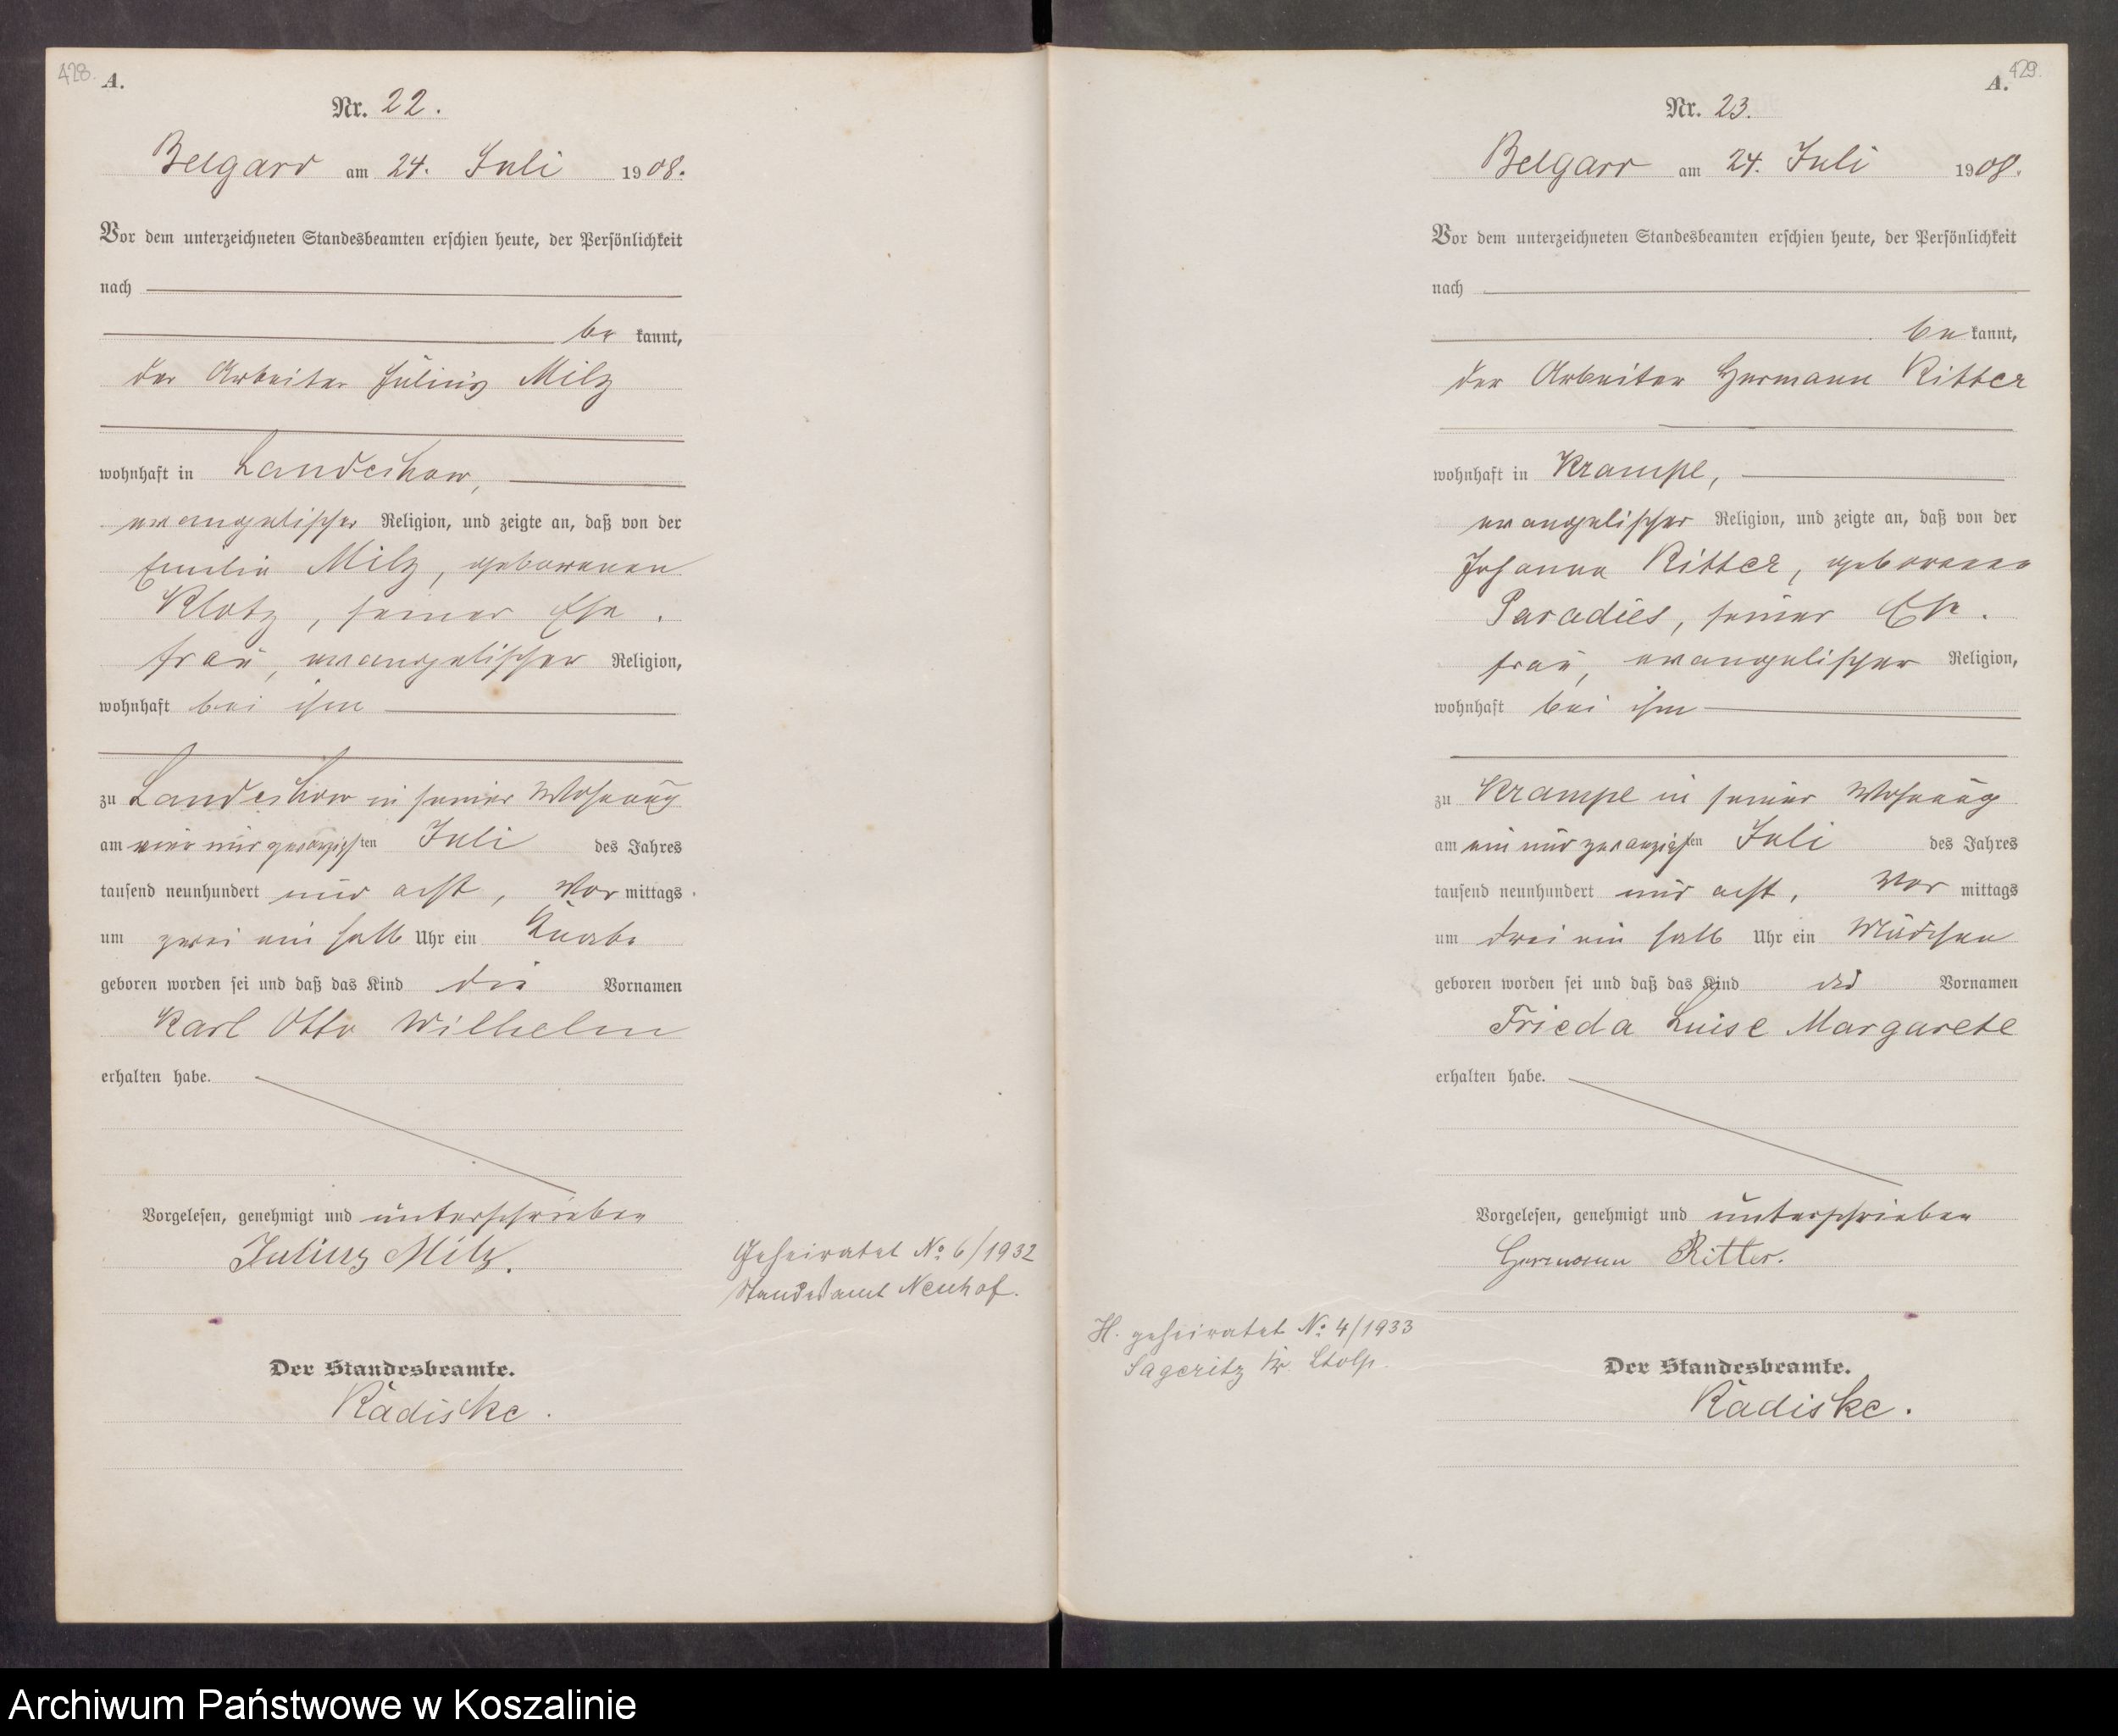 428.
A.
Nr. 22.
Belgard am 24. Juli 1908.
Vor dem unterzeichneten Standesbeamten erschien heute, der Persönlichkeit
nach
be kannt,
der Arbeiter Julius Milz
wohnhaft in Landechow,
evangelischer Religion, und zeigte an, daß von der
Emilie Milz, geborenen
Klotz, seiner Ehe.
frau, evangelischer Religion,
wohnhaft bei ihm
zu Landechow in seiner Wohnung
am vier und zwanzigsten Juli des Jahres
tausend neunhundert und acht, Vor mittags
um zwei ein halb Uhr ein Knabe
geboren worden sei und daß das Kind die Vornamen
Karl Otto Wilhelm
erhalten habe.
Vorgelesen, genehmigt und unterschrieben
Julius Milz.
Der Standesbeamte.
Radiske.
Geheiratet No 6/1932
Standesamt Neuhof.
429.
A.
Nr. 23.
Belgard am 24. Juli 1908.
Vor dem unterzeichneten Standesbeamten erschien heute, der Persönlichkeit
nach
be kannt,
der Arbeiter Hermann Ritter
wohnhaft in Krampe,
evangelischer Religion, und zeigte an, daß von der
Johanna Ritter, geborenen
Paradies, seiner Ehe.
frau, evangelischer Religion,
wohnhaft bei ihm
zu Krampe in seiner Wohnung
am ein und zwanzigsten Juli des Jahres
tausend neunhundert und acht, Vor mittags
um drei ein halb Uhr ein Mädchen
geboren worden sei und daß das Kind die Vornamen
Frieda Luise Margarete
erhalten habe.
Vorgelesen, genehmigt und unterschrieben
Hermann Ritter.
H. geheiratet No 4/1933
Sageritz Kr. Stolp.
Der Standesbeamte.
Radiske.
Archiwum Państwowe w Koszalinie